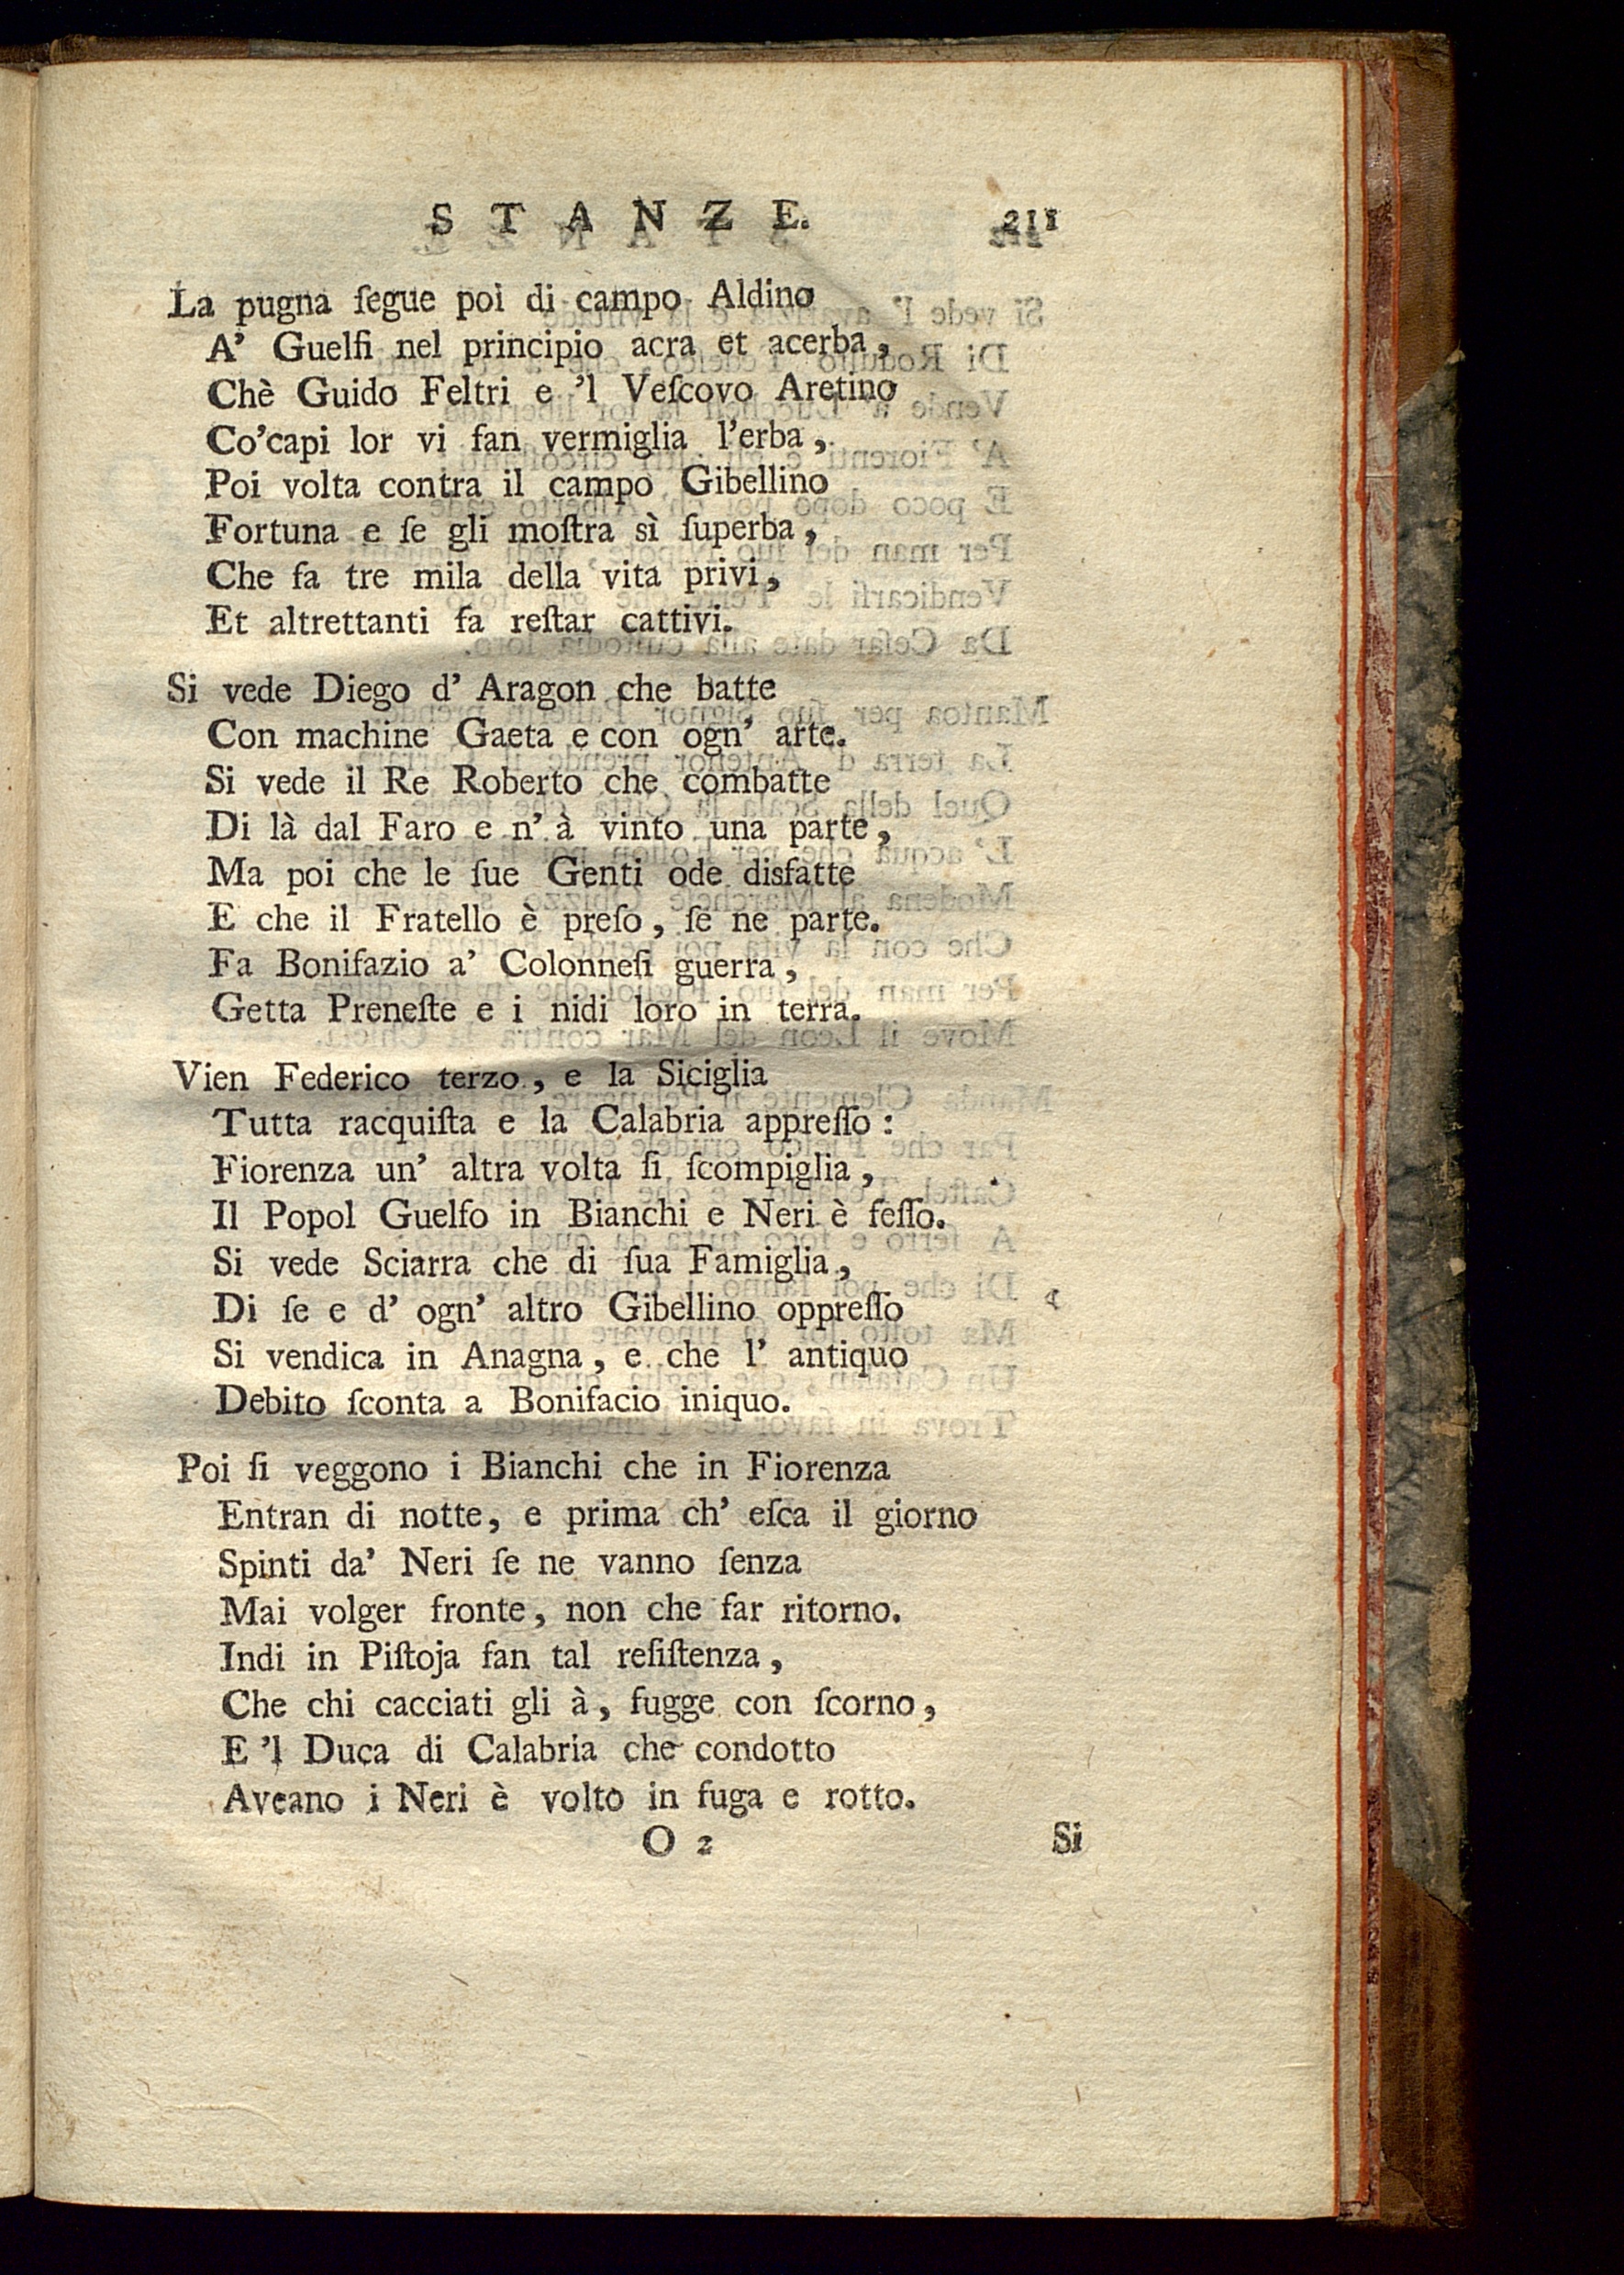 STANZE. 211
La pugna ſegue poi di campo Aldino
A' Guelfi nel principio acra et acerba,
Chè Guido Feltri e 'l Veſcovo Aretino
Co'capi lor vi fan vermiglia l'erba,
Poi volta contra il campo Gibellino
Fortuna e ſe gli moſtra sì ſuperba,
Che fa tre mila della vita privi,
Et altrettanti fa reſtar cattivi.
Si vede Diego d' Aragon che batte
Con machine Gaeta e con ogn' arte.
Si vede il Re Roberto che combatte
Di là dal Faro e n' à vinto una parte,
Ma poi che le ſue Genti ode disfatte
E che il Fratello è preſo, ſe ne parte.
Fa Bonifazio a' Colonneſi guerra,
Getta Preneſte e i nidi loro in terra.
Vien Federico terzo, e la Siciglia
Tutta racquiſta e la Calabria appreſſo:
Fiorenza un' altra volta ſi ſcompiglia,
Il Popol Guelfo in Bianchi e Neri è feſſo.
Si vede Sciarra che di ſua Famiglia,
Di ſe e d' ogn' altro Gibellino oppreſſo
Si vendica in Anagna, e che l' antiquo
Debito ſconta a Bonifacio iniquo.
Poi ſi veggono i Bianchi che in Fiorenza
Entran di notte, e prima ch' eſca il giorno
Spinti da' Neri ſe ne vanno ſenza
Mai volger fronte, non che far ritorno.
Indi in Piſtoja fan tal reſiſtenza,
Che chi cacciati gli à, fugge con ſcorno,
E 'l Duca di Calabria che condotto
Aveano i Neri è volto in fuga e rotto.
O 2 Si